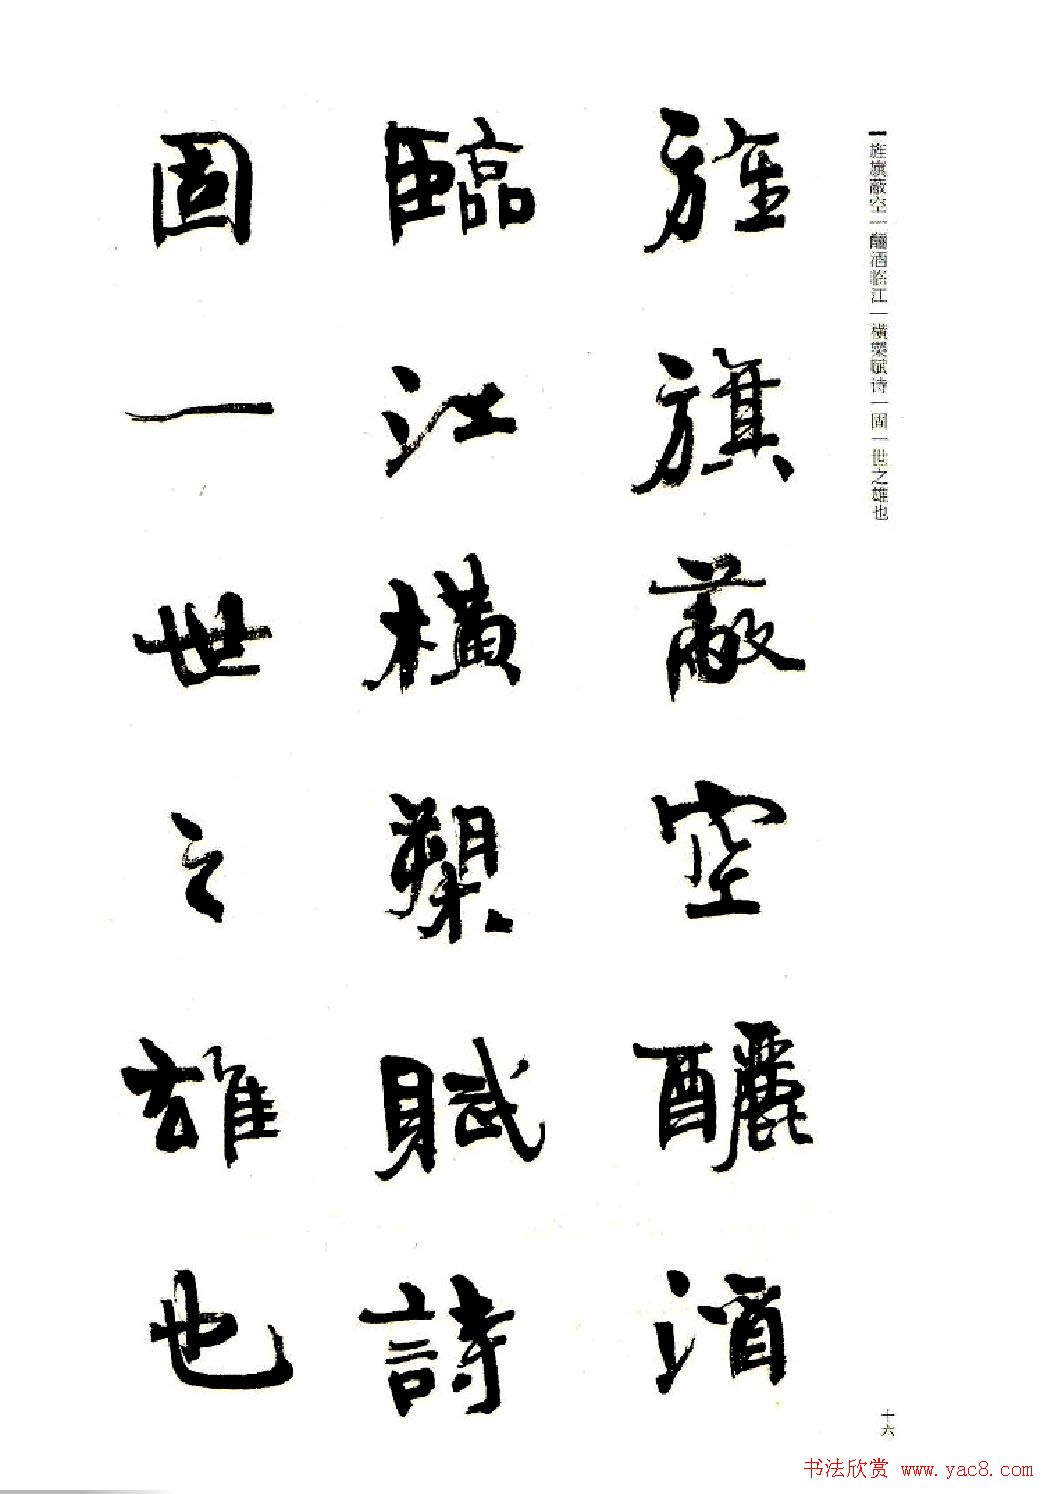 旌旗蔽空一釃酒临江一横槊赋诗一固一世之雄也
旌旗蔽空釃酒
臨江橫槊賦詩
固一世之雄也
十六
书法欣赏 www.yac8.com